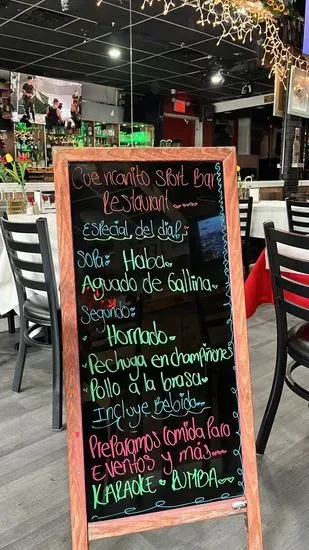 Cuencanito Sport Bar
Restaurant
Especial del dia
Sopa: Haba
Aguado de Gallina
Segundo:
Hornado
Pechuga en champiñones
Pollo a la brasa
Incluye Bebida
Preparamos Comida Para
Eventos y más
KARAOKE RUMBA